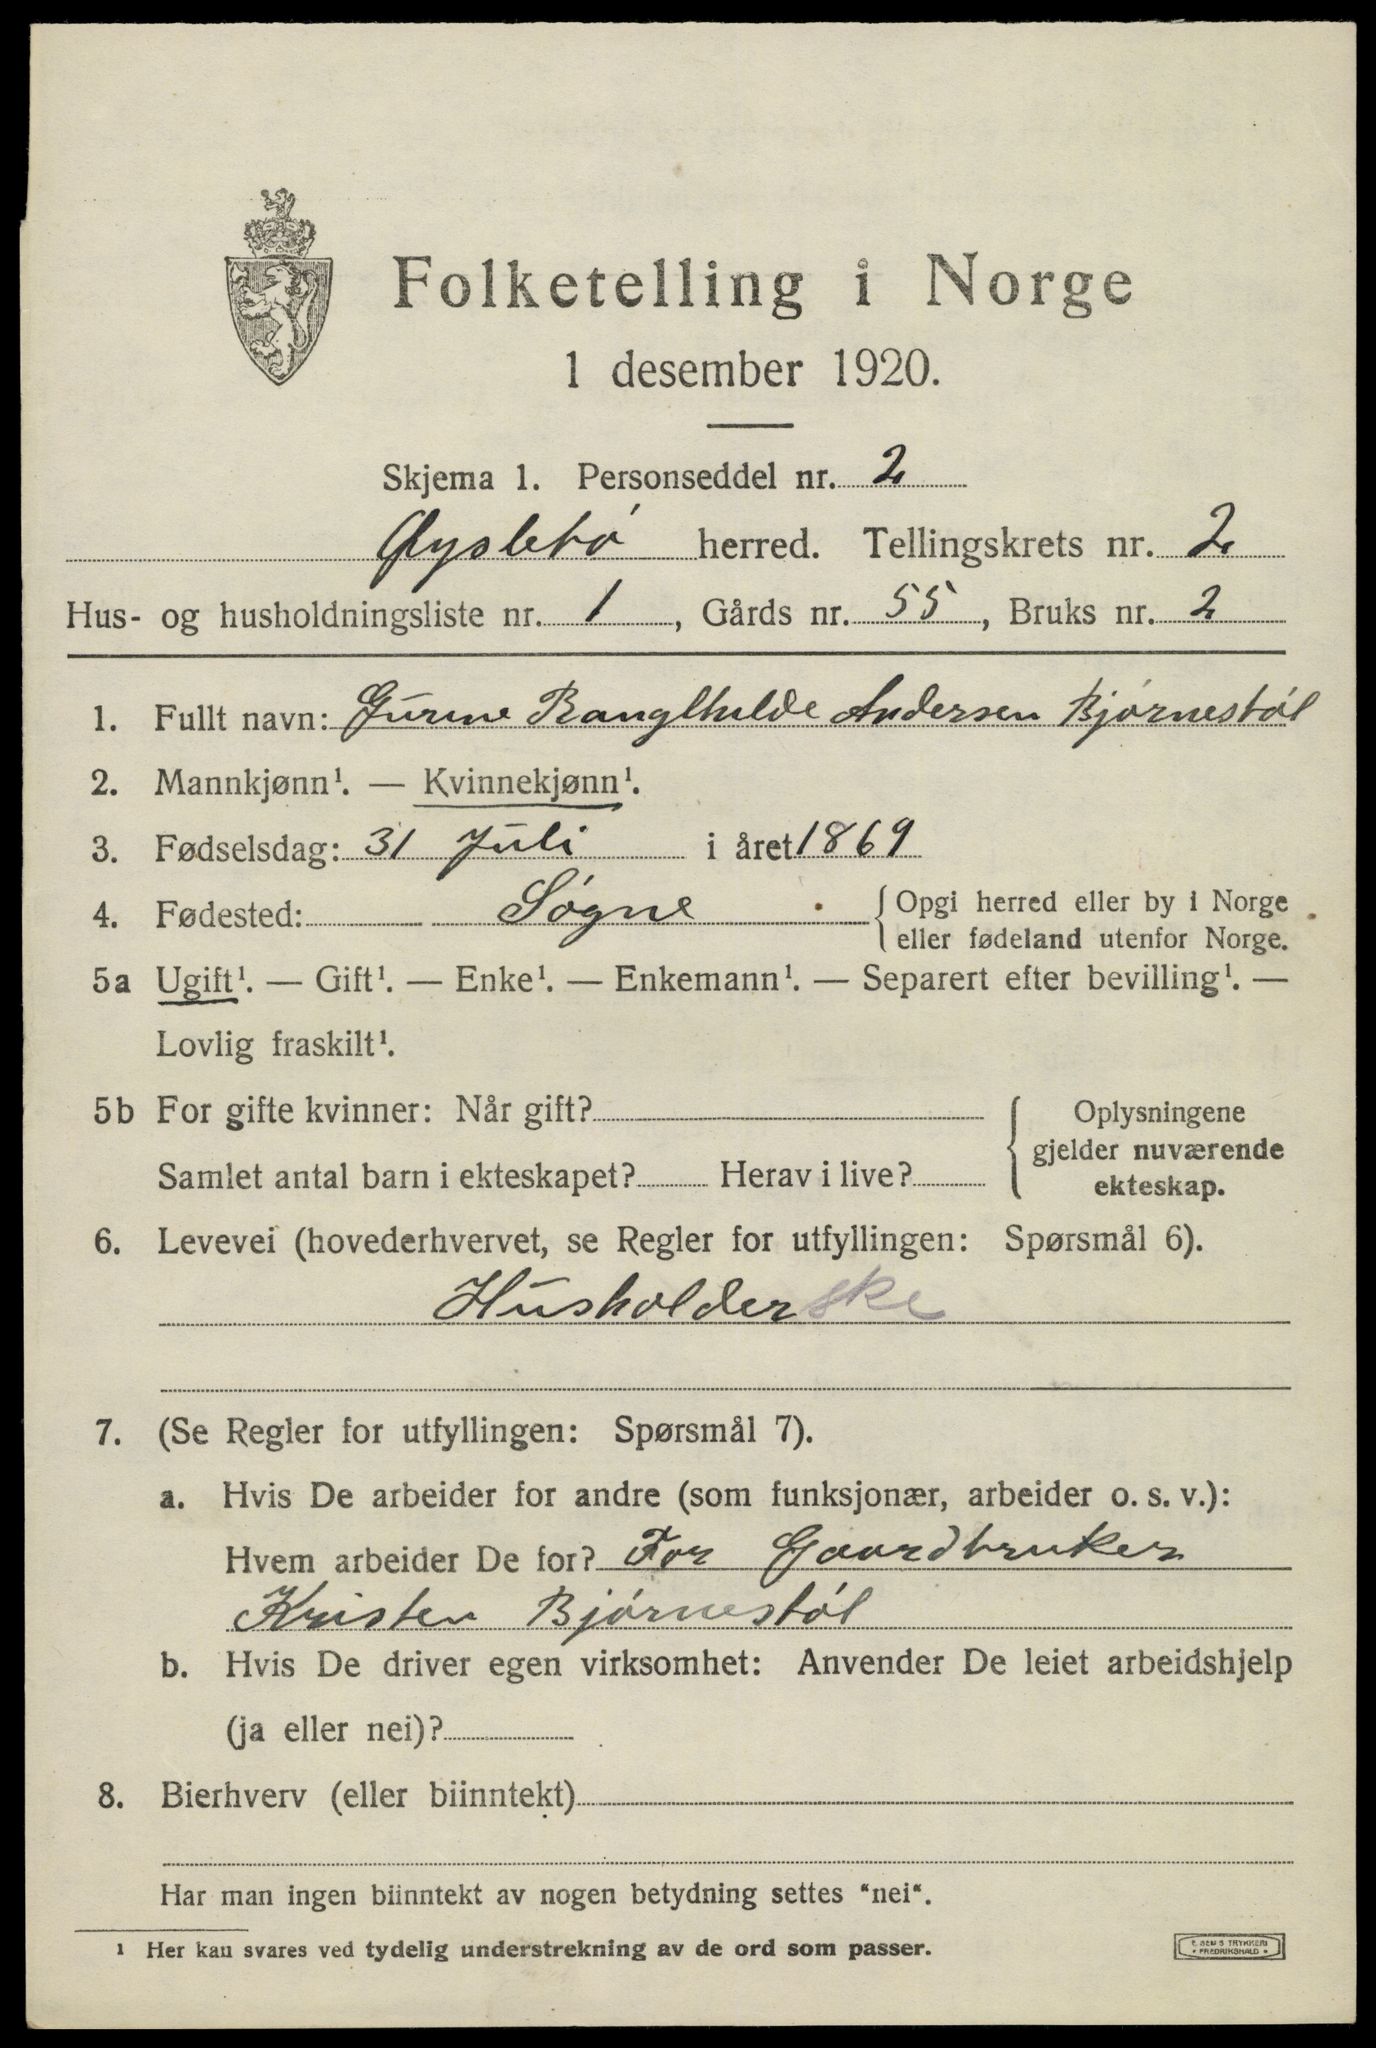 Folketelling i Norge
1 desember 1920.
Skjema 1. Personseddel nr. 2
Øyslebø herred. Tellingskrets nr. 2
Hus- og husholdningsliste nr. 1, Gårds nr. 55, Bruks nr. 2
1. Fullt navn: Gurine Ranghilde Andersen Bjørnestøl
2. Mannkjønn¹. — Kvinnekjønn¹.
3. Fødselsdag: 31 Juli i året 1869
4. Fødested: Søgne { Opgi herred eller by i Norge
eller fødeland utenfor Norge.
5a Ugift¹. — Gift¹. — Enke¹. — Enkemann¹. — Separert efter bevilling¹. —
Lovlig fraskilt¹.
5b For gifte kvinner: Når gift? { Oplysningene
gjelder nuværende
Samlet antal barn i ekteskapet? Herav i live? ekteskap.
6. Levevei (hovederhvervet, se Regler for utfyllingen: Spørsmål 6).
Husholderske
7. (Se Regler for utfyllingen: Spørsmål 7).
a. Hvis De arbeider for andre (som funksjonær, arbeider o. s. v.):
Hvem arbeider De for? For Gaardbruker
Kristen Bjørnestøl
b. Hvis De driver egen virksomhet: Anvender De leiet arbeidshjelp
(ja eller nei)?
8. Bierhverv (eller biinntekt)
Har man ingen biinntekt av nogen betydning settes "nei".
¹ Her kan svares ved tydelig understrekning av de ord som passer.
TRYKKERI
FREDRIKSHALD